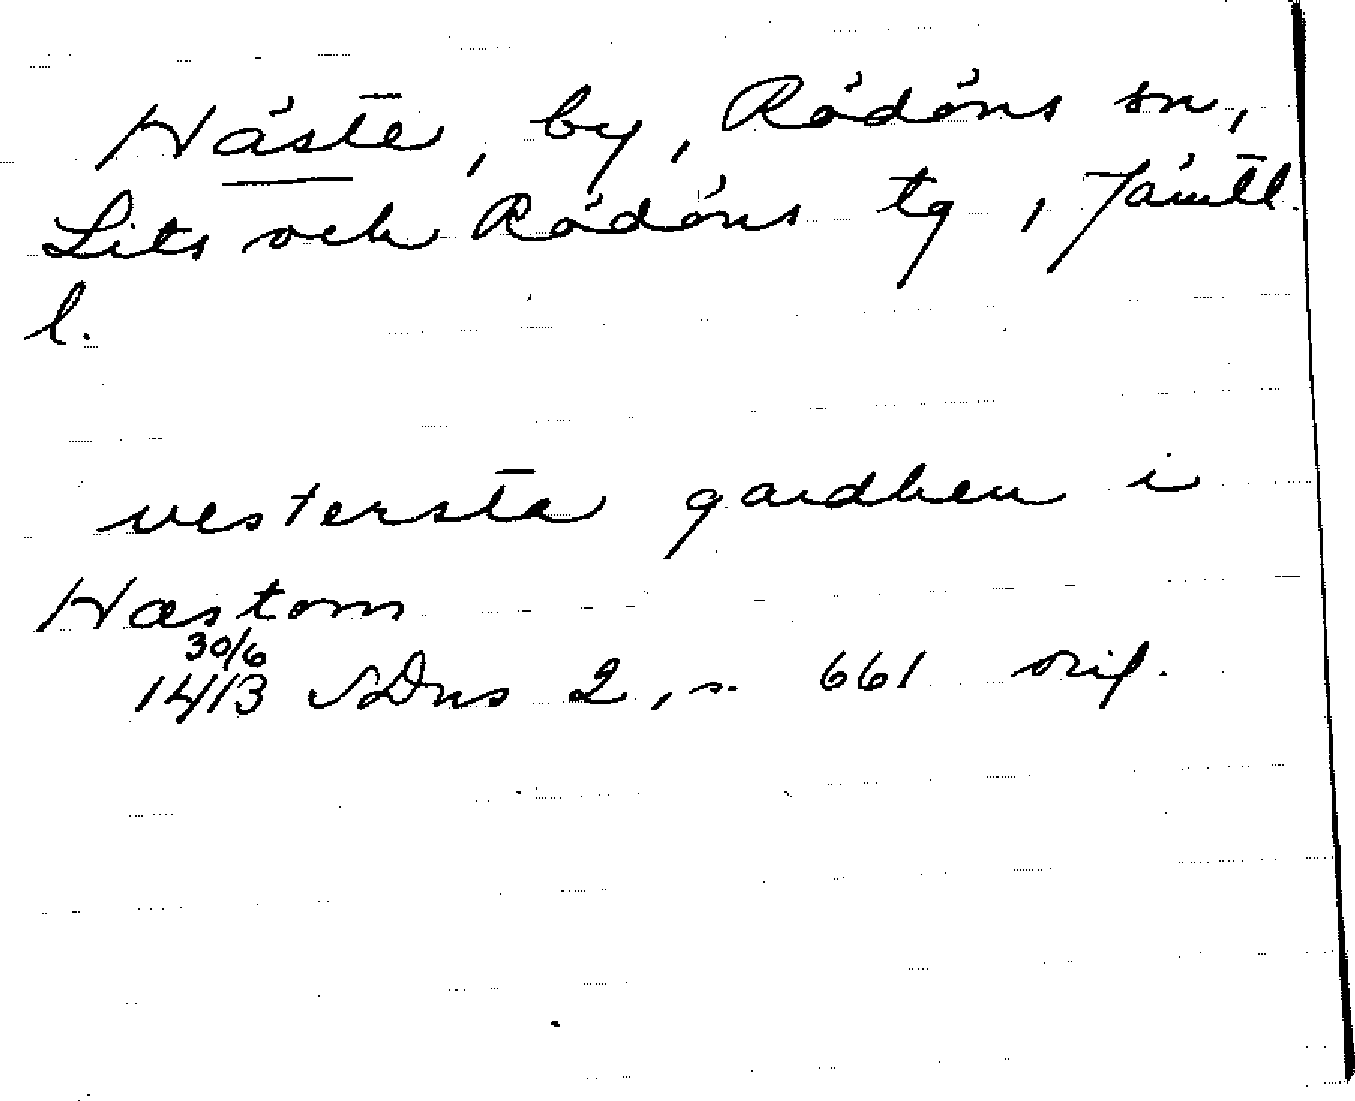 Häste, by, Rödöns sn,
Lits och Rödöns tg, Jämtl.
l.
vestersta gardhen i
Hæstom
30/6
1413 SDns 2, s. 661 orig.